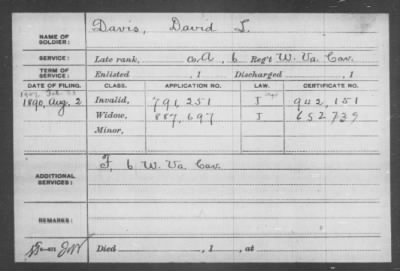 NAME OF SOLDIER: Davis, David
SERVICE: Late rank, Co. A, 6 Reg't W. Va. Cav.
TERM OF SERVICE: Enlisted , 1 Discharged , 1
DATE OF FILING. CLASS. APPLICATION NO. LAW. CERTIFICATE NO.
1890, Aug. 2 Invalid, 791,251 J 942,151
Widow, 887,697 J 652739
Minor,
ADDITIONAL SERVICES: F, 6 W. Va. Cav.
REMARKS:
Died , 1 , at